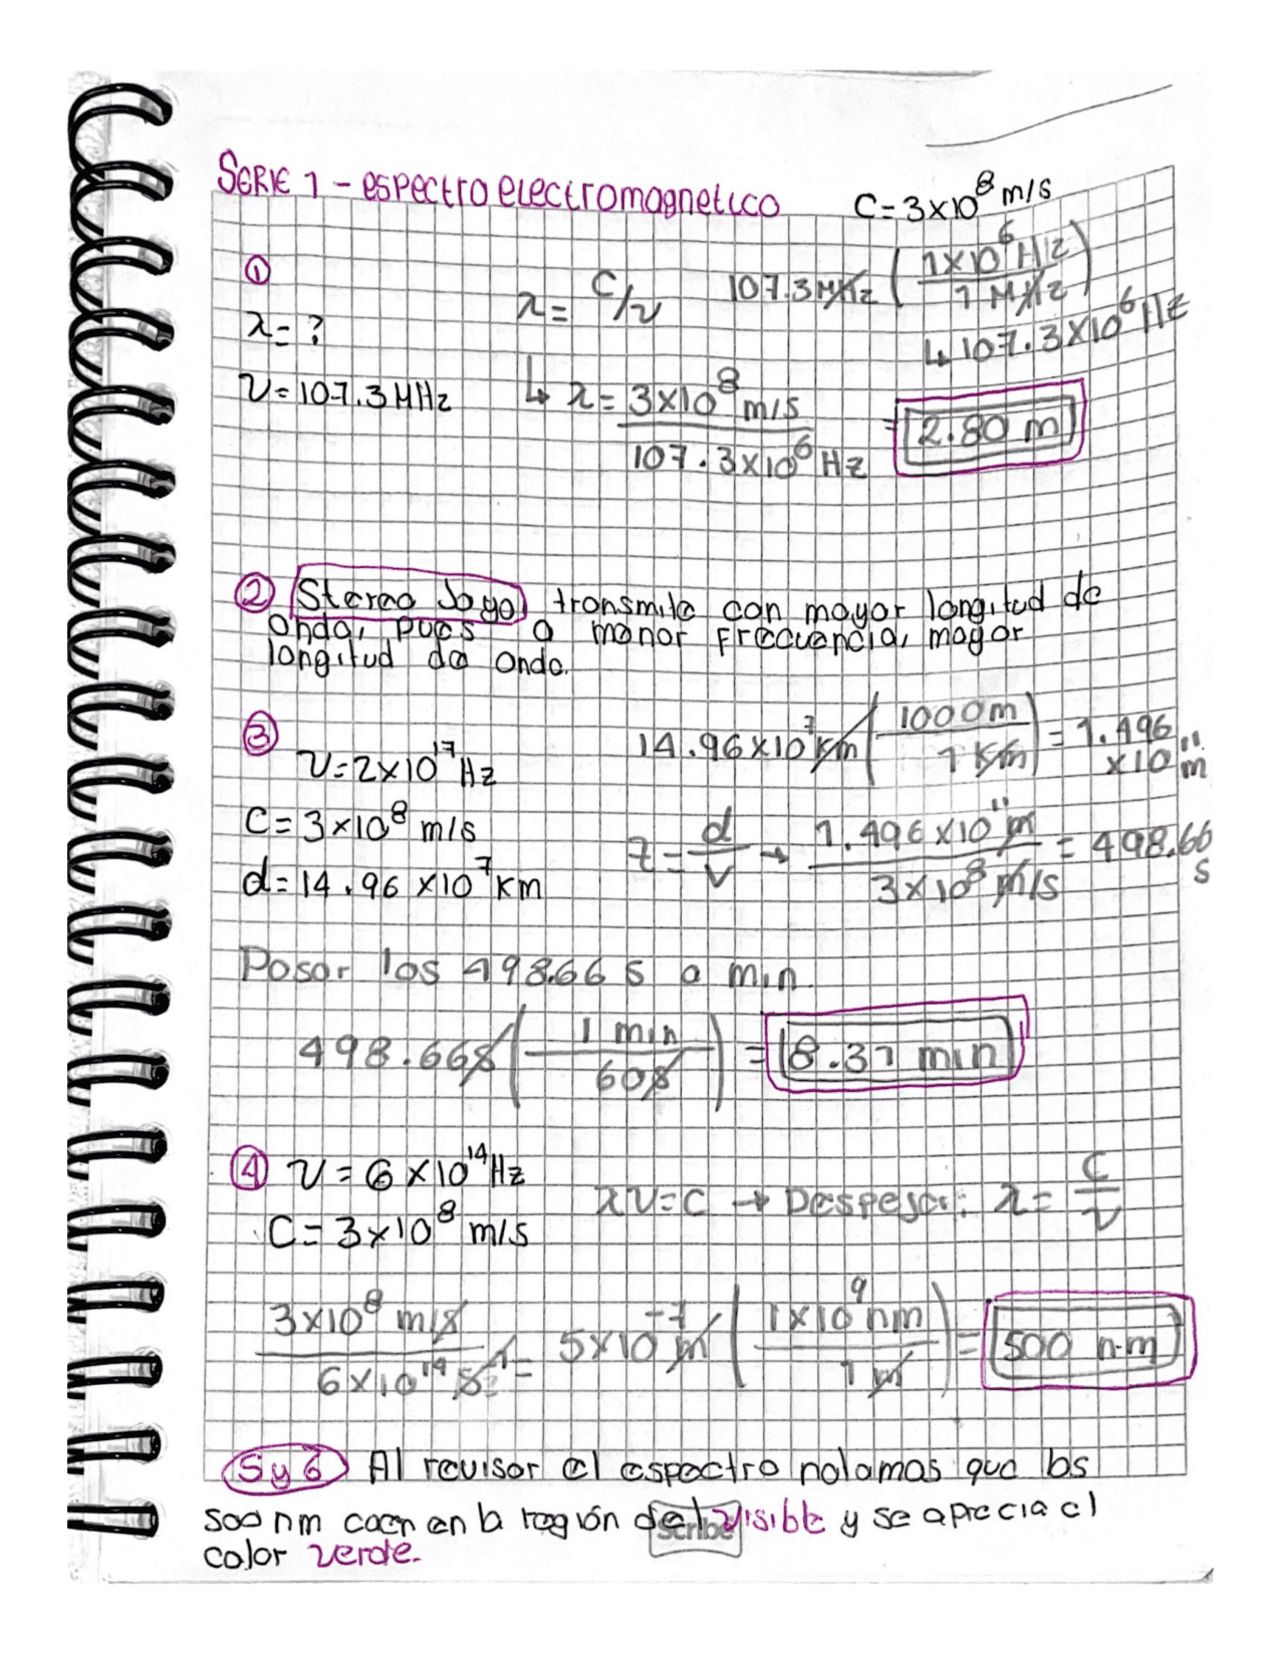 SERIE 1 - espectro electromagnetico
C = 3x10⁸ m/s
①
λ = ?
ν = 107.3 MHz
λ = C/ν
107.3 MHz (1x10⁶ Hz / 1 MHz)
↳ 107.3x10⁶ Hz
↳ λ = 3x10⁸ m/s / 107.3x10⁶ Hz = 2.80 m
② Stereo Joya transmite con mayor longitud de
onda, pues a menor frecuencia, mayor
longitud de onda.
③
ν = 2x10¹⁷ Hz
C = 3x10⁸ m/s
d = 14.96 x10⁷ km
14.96x10⁷ km (1000m / 1 km) = 1.496 x10¹¹ m
t = d/v → 1.496x10¹¹ m / 3x10⁸ m/s = 498.66 s
Pasar los 498.66 s a min.
498.66s (1 min / 60s) = 8.31 min
④ ν = 6x10¹⁴ Hz
C = 3x10⁸ m/s
λν = C → Despejar: λ = C/ν
3x10⁸ m/s / 6x10¹⁴ s⁻¹ = 5x10⁻⁷ m (1x10⁹ nm / 1 m) = 500 nm
5 y 6 Al revisar el espectro notamos que los
500 nm caen en la región del visible y se aprecia el
color verde.
Scribe